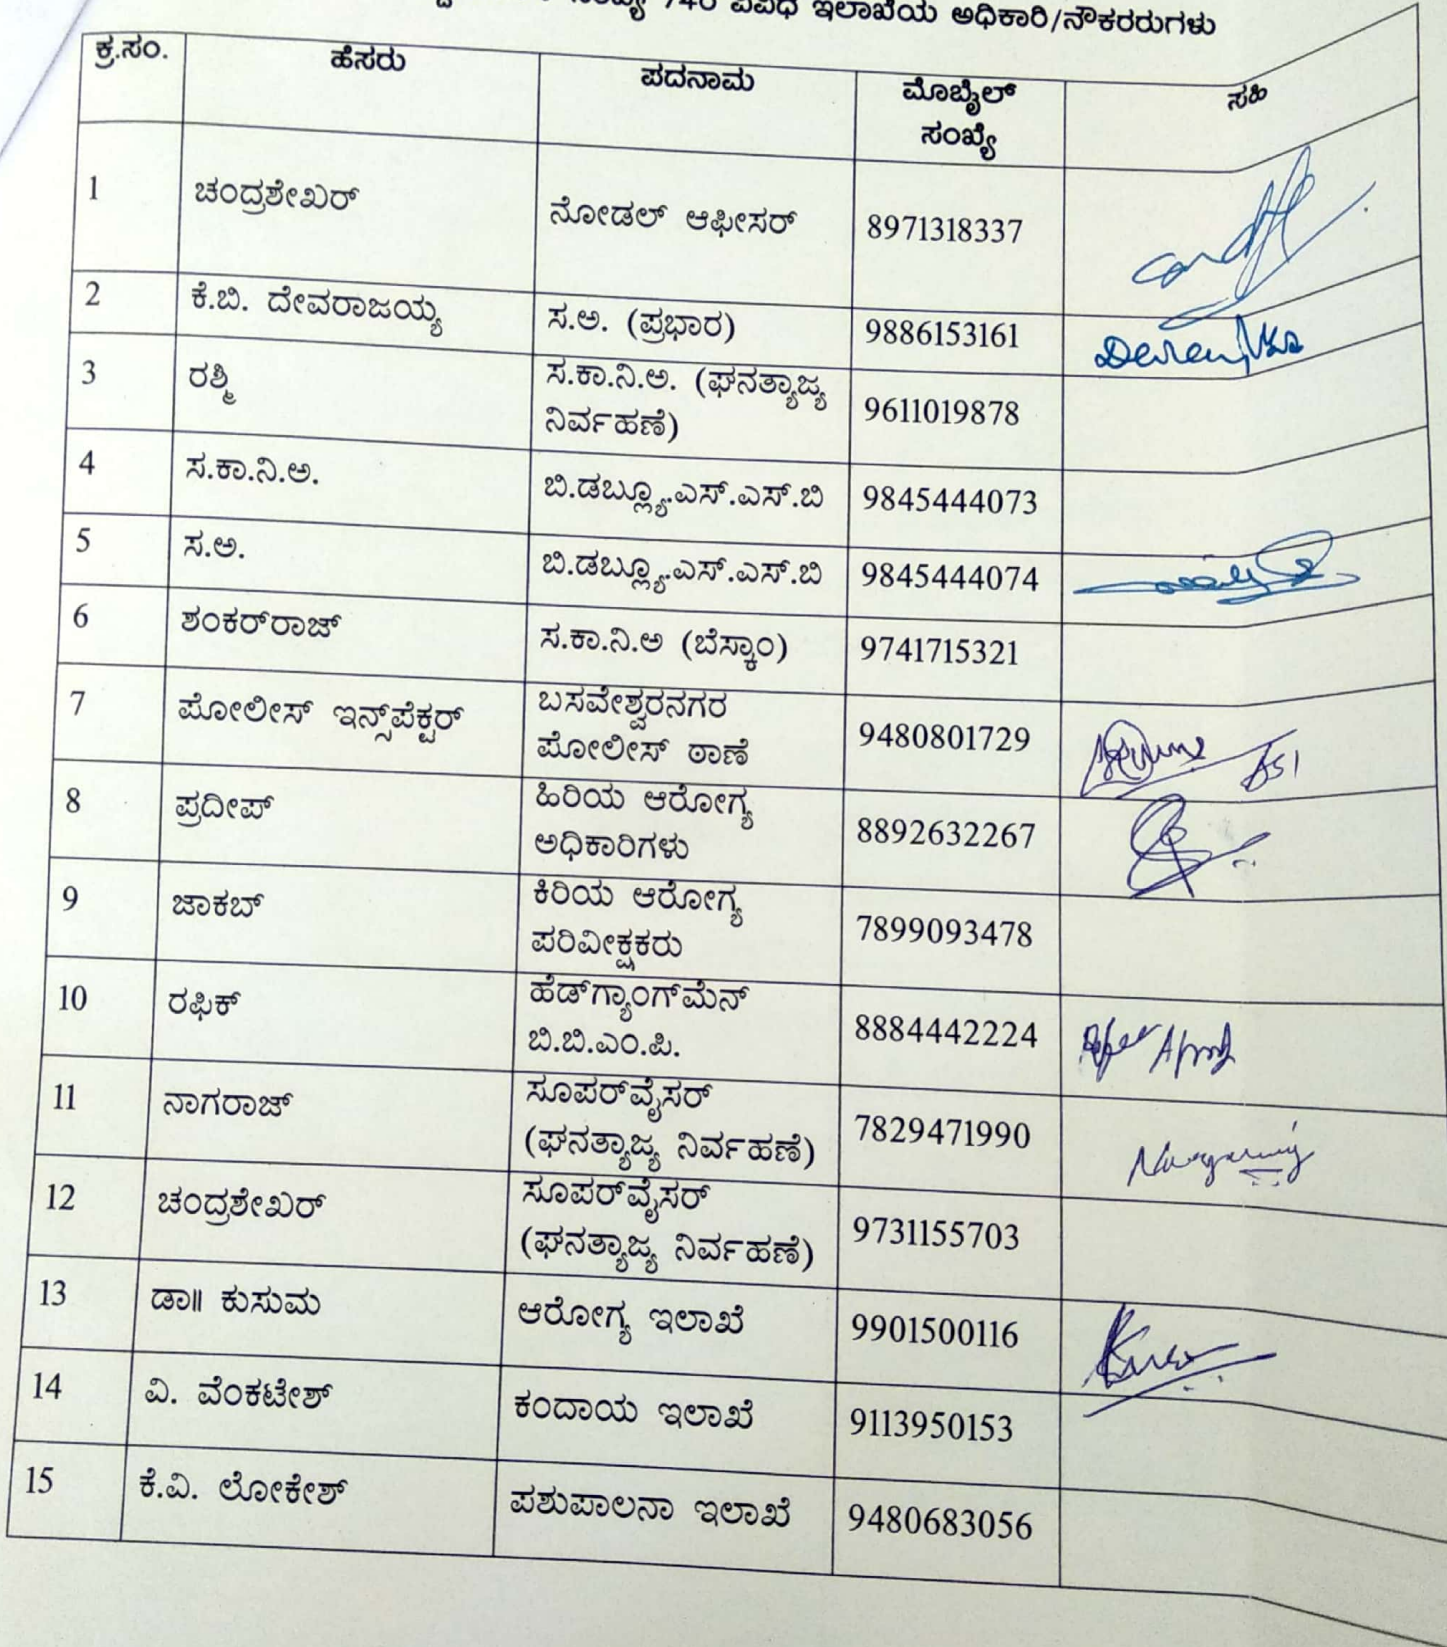 ವಿವಿಧ ಇಲಾಖೆಯ ಅಧಿಕಾರಿ/ನೌಕರರುಗಳು
ಕ್ರ.ಸಂ. ಹೆಸರು ಪದನಾಮ ಮೊಬೈಲ್ ಸಂಖ್ಯೆ ಸಹಿ
1 ಚಂದ್ರಶೇಖರ್ ನೋಡಲ್ ಆಫೀಸರ್ 8971318337
2 ಕೆ.ಬಿ. ದೇವರಾಜಯ್ಯ ಸ.ಅ. (ಪ್ರಭಾರ) 9886153161
3 ರಶ್ಮಿ ಸ.ಕಾ.ನಿ.ಅ. (ಘನತ್ಯಾಜ್ಯ ನಿರ್ವಹಣೆ) 9611019878
4 ಸ.ಕಾ.ನಿ.ಅ. ಬಿ.ಡಬ್ಲ್ಯೂ.ಎಸ್.ಎಸ್.ಬಿ 9845444073
5 ಸ.ಅ. ಬಿ.ಡಬ್ಲ್ಯೂ.ಎಸ್.ಎಸ್.ಬಿ 9845444074
6 ಶಂಕರ್‌ರಾಜ್ ಸ.ಕಾ.ನಿ.ಅ (ಬೆಸ್ಕಾಂ) 9741715321
7 ಪೋಲೀಸ್ ಇನ್ಸ್‌ಪೆಕ್ಟರ್ ಬಸವೇಶ್ವರನಗರ ಪೋಲೀಸ್ ಠಾಣೆ 9480801729
8 ಪ್ರದೀಪ್ ಹಿರಿಯ ಆರೋಗ್ಯ ಅಧಿಕಾರಿಗಳು 8892632267
9 ಜಾಕಬ್ ಕಿರಿಯ ಆರೋಗ್ಯ ಪರಿವೀಕ್ಷಕರು 7899093478
10 ರಫಿಕ್ ಹೆಡ್‌ಗ್ಯಾಂಗ್‌ಮೆನ್ ಬಿ.ಬಿ.ಎಂ.ಪಿ. 8884442224
11 ನಾಗರಾಜ್ ಸೂಪರ್‌ವೈಸರ್ (ಘನತ್ಯಾಜ್ಯ ನಿರ್ವಹಣೆ) 7829471990
12 ಚಂದ್ರಶೇಖರ್ ಸೂಪರ್‌ವೈಸರ್ (ಘನತ್ಯಾಜ್ಯ ನಿರ್ವಹಣೆ) 9731155703
13 ಡಾ॥ ಕುಸುಮ ಆರೋಗ್ಯ ಇಲಾಖೆ 9901500116
14 ವಿ. ವೆಂಕಟೇಶ್ ಕಂದಾಯ ಇಲಾಖೆ 9113950153
15 ಕೆ.ವಿ. ಲೋಕೇಶ್ ಪಶುಪಾಲನಾ ಇಲಾಖೆ 9480683056